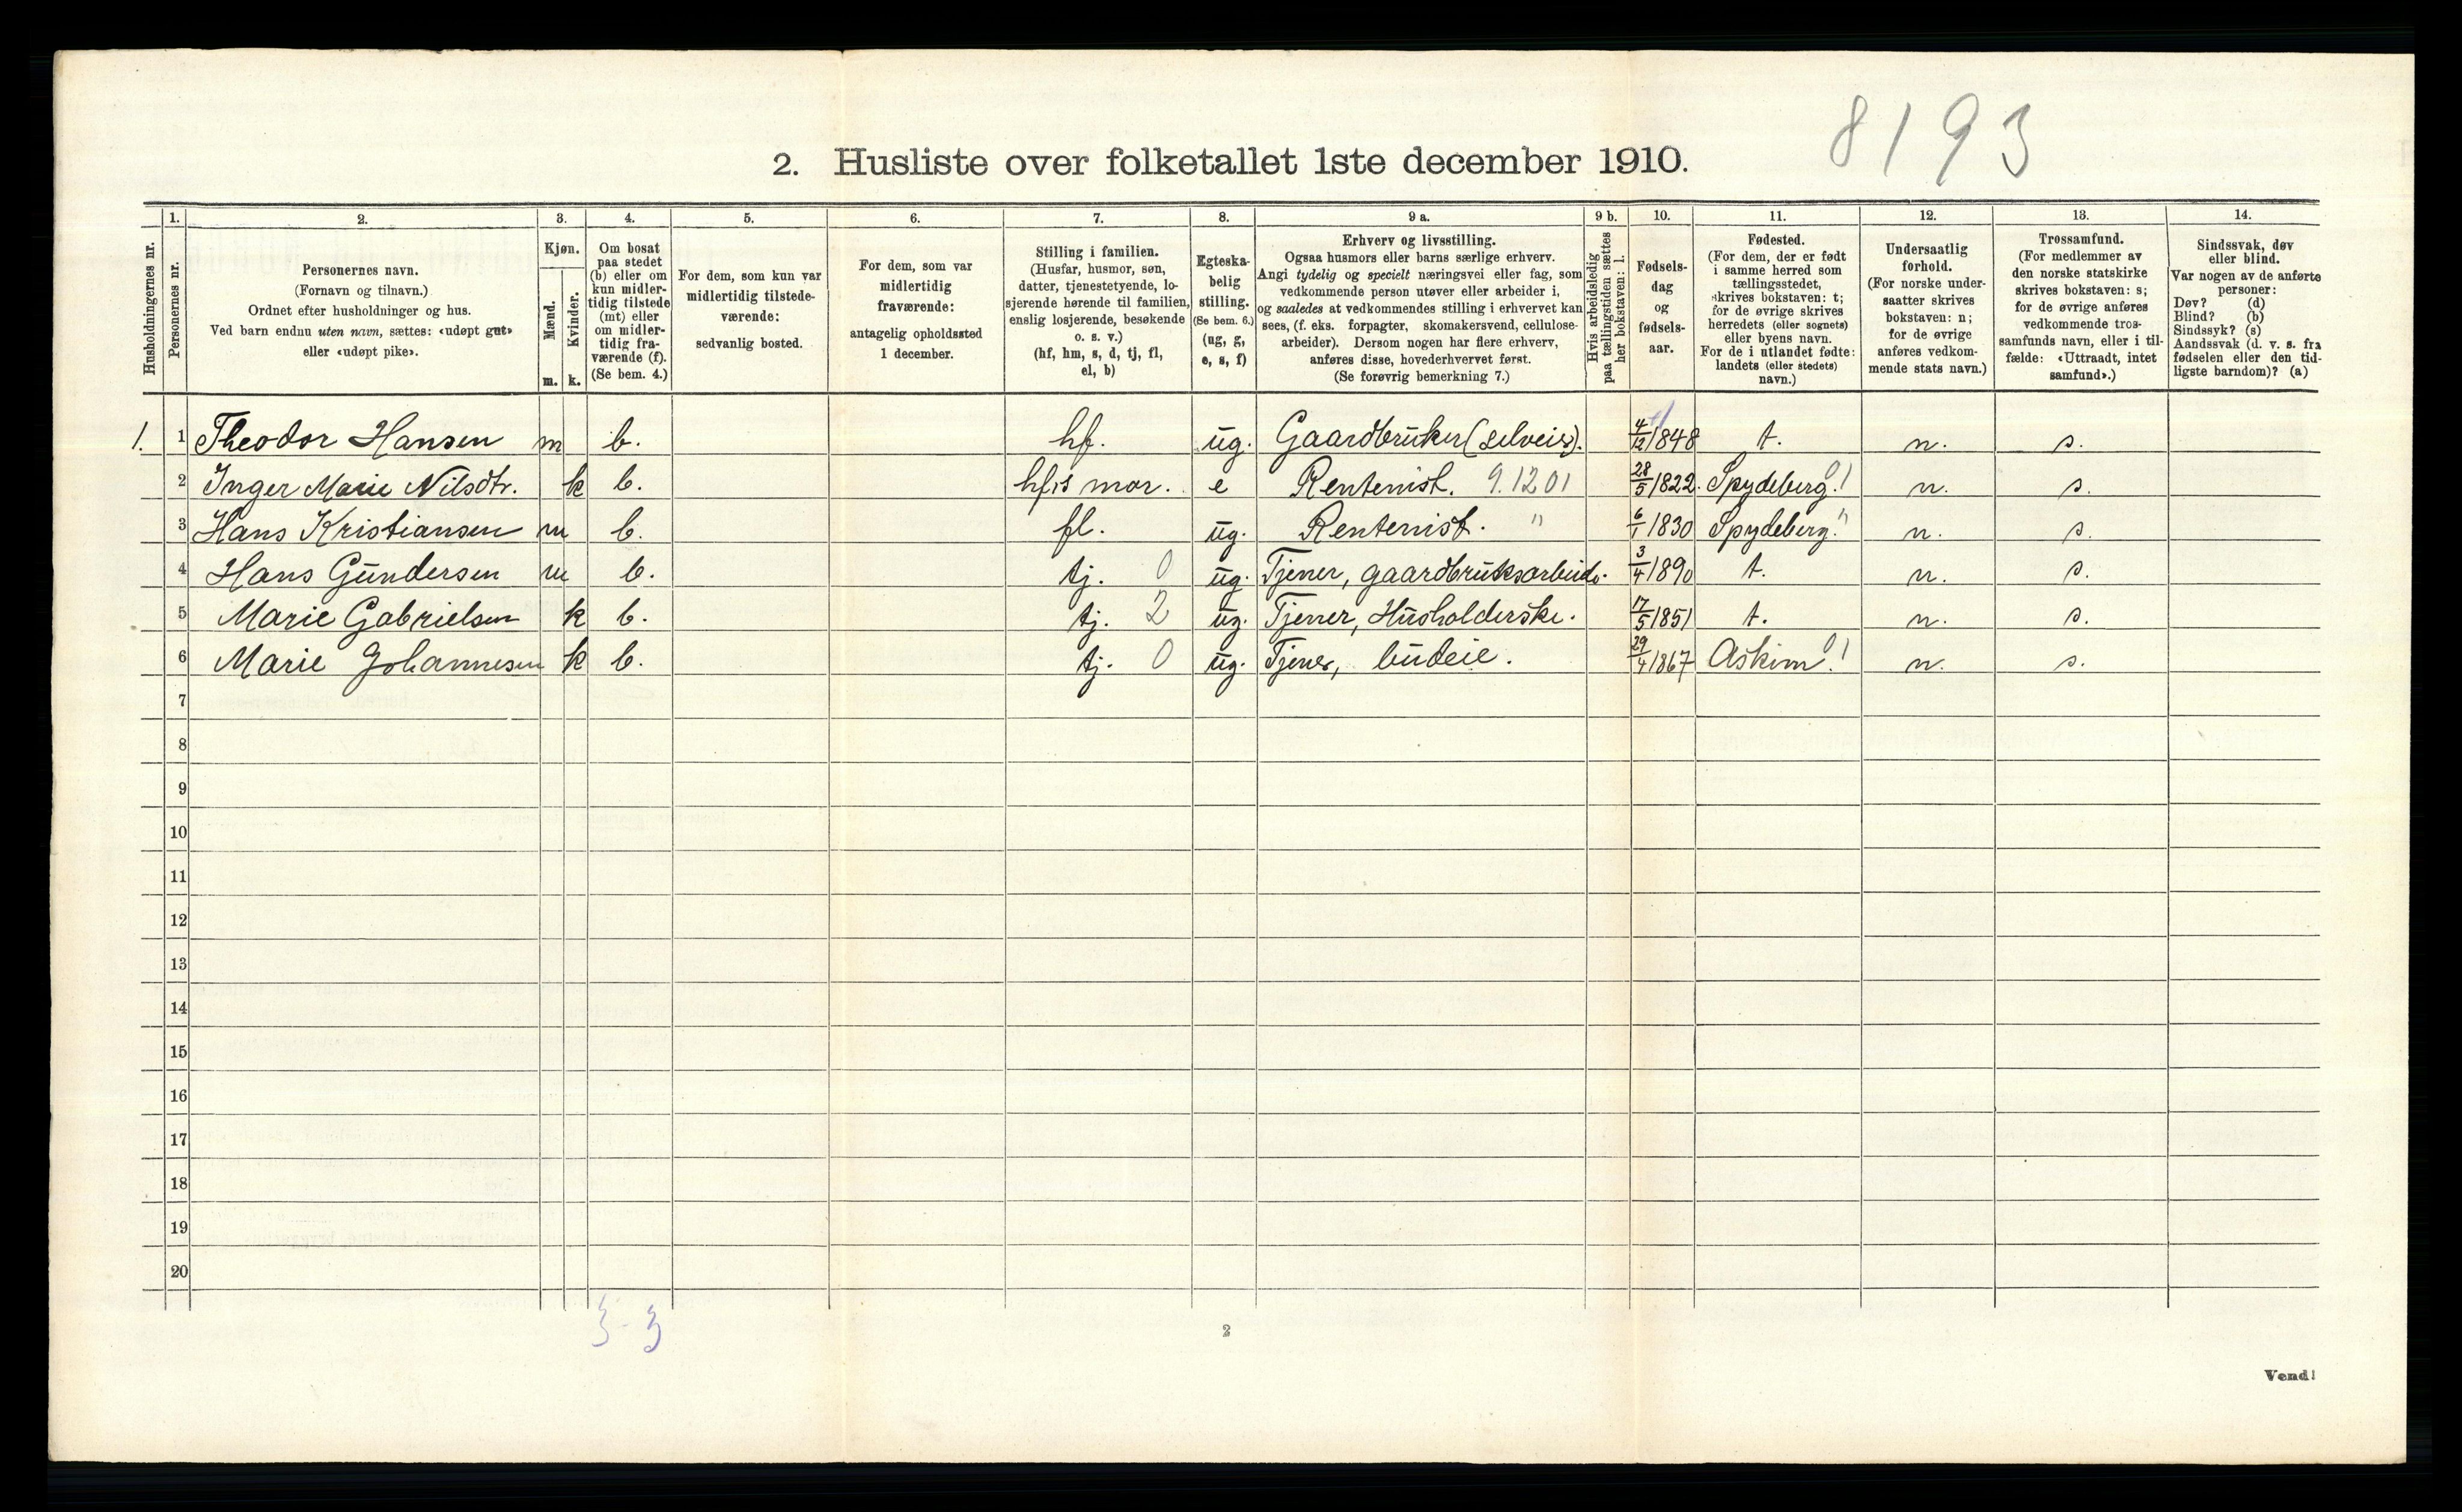 8193
2. Husliste over folketallet 1ste december 1910.
Husholdningernes nr.
1. Personernes nr.
2. Personernes navn.
(Fornavn og tilnavn.)
Ordnet efter husholdninger og hus.
Ved barn endnu uten navn, sættes: «udøpt gut»
eller «udøpt pike».
3. Kjøn.
Mænd. m.
Kvinder. k.
4. Om bosat
paa stedet
(b) eller om
kun midler-
tidig tilstede
(mt) eller
om midler-
tidig fra-
værende (f).
(Se bem. 4.)
5. For dem, som kun var
midlertidig tilstede-
værende:
sedvanlig bosted.
6. For dem, som var
midlertidig
fraværende:
antagelig opholdssted
1 december.
7. Stilling i familien.
(Husfar, husmor, søn,
datter, tjenestetyende, lo-
sjerende hørende til familien,
enslig losjerende, besøkende
o. s. v.)
(hf, hm, s, d, tj, fl,
el, b)
8. Egteska-
belig
stilling.
(Se bem. 6.)
(ug, g,
e, s, f)
9 a. Erhverv og livsstilling.
Ogsaa husmors eller barns særlige erhverv.
Angi tydelig og specielt næringsvei eller fag, som
vedkommende person utøver eller arbeider i,
og saaledes at vedkommendes stilling i erhvervet kan
sees, (f. eks. forpagter, skomakersvend, cellulose-
arbeider). Dersom nogen har flere erhverv,
anføres disse, hovederhvervet først.
(Se forøvrig bemerkning 7.)
9 b. Hvis arbeidsledig
paa tællingstiden sættes
her bokstaven: l.
10. Fødsels-
dag
og
fødsels-
aar.
11. Fødested.
(For dem, der er født
i samme herred som
tællingsstedet,
skrives bokstaven: t;
for de øvrige skrives
herredets (eller sognets)
eller byens navn.
For de i utlandet fødte:
landets (eller stedets)
navn.)
12. Undersaatlig
forhold.
(For norske under-
saatter skrives
bokstaven: n;
for de øvrige
anføres vedkom-
mende stats navn.)
13. Trossamfund.
(For medlemmer av
den norske statskirke
skrives bokstaven: s;
for de øvrige anføres
vedkommende tros-
samfunds navn, eller i til-
fælde: «Uttraadt, intet
samfund».)
14. Sindssvak, døv
eller blind.
Var nogen av de anførte
personer:
Døv? (d)
Blind? (b)
Sindssyk? (s)
Aandssvak (d. v. s. fra
fødselen eller den tid-
ligste barndom)? (a)
1. 1 Theodor Hansen m b. hf. ug. Gaardbruker (selveier). 4/12 1848 t. n. s.
2 Inger Marie Nilsdtr. k b. hf's mor. e Rentenist. 9.1201 28/5 1822. Spydeberg. 01 n. s.
3 Hans Kristiansen m b. fl. ug. Rentenist. " 6/1 1830 Spydeberg. " n. s.
4 Hans Gundersen m b. tj. 0 ug. Tjener, gaardbruksarbeider. 3/4 1890 t. n. s.
5 Marie Gabrielsen k b. tj. 2 ug. Tjener, Husholderske. 17/5 1851 t. n. s.
6 Marie Johannesen k b. tj. 0 ug. Tjener, budeie. 29/4 1867 Askim. 01 n. s.
7
8
9
10
11
12
13
14
15
16
17
18
19
20
3-3
2
Vend!